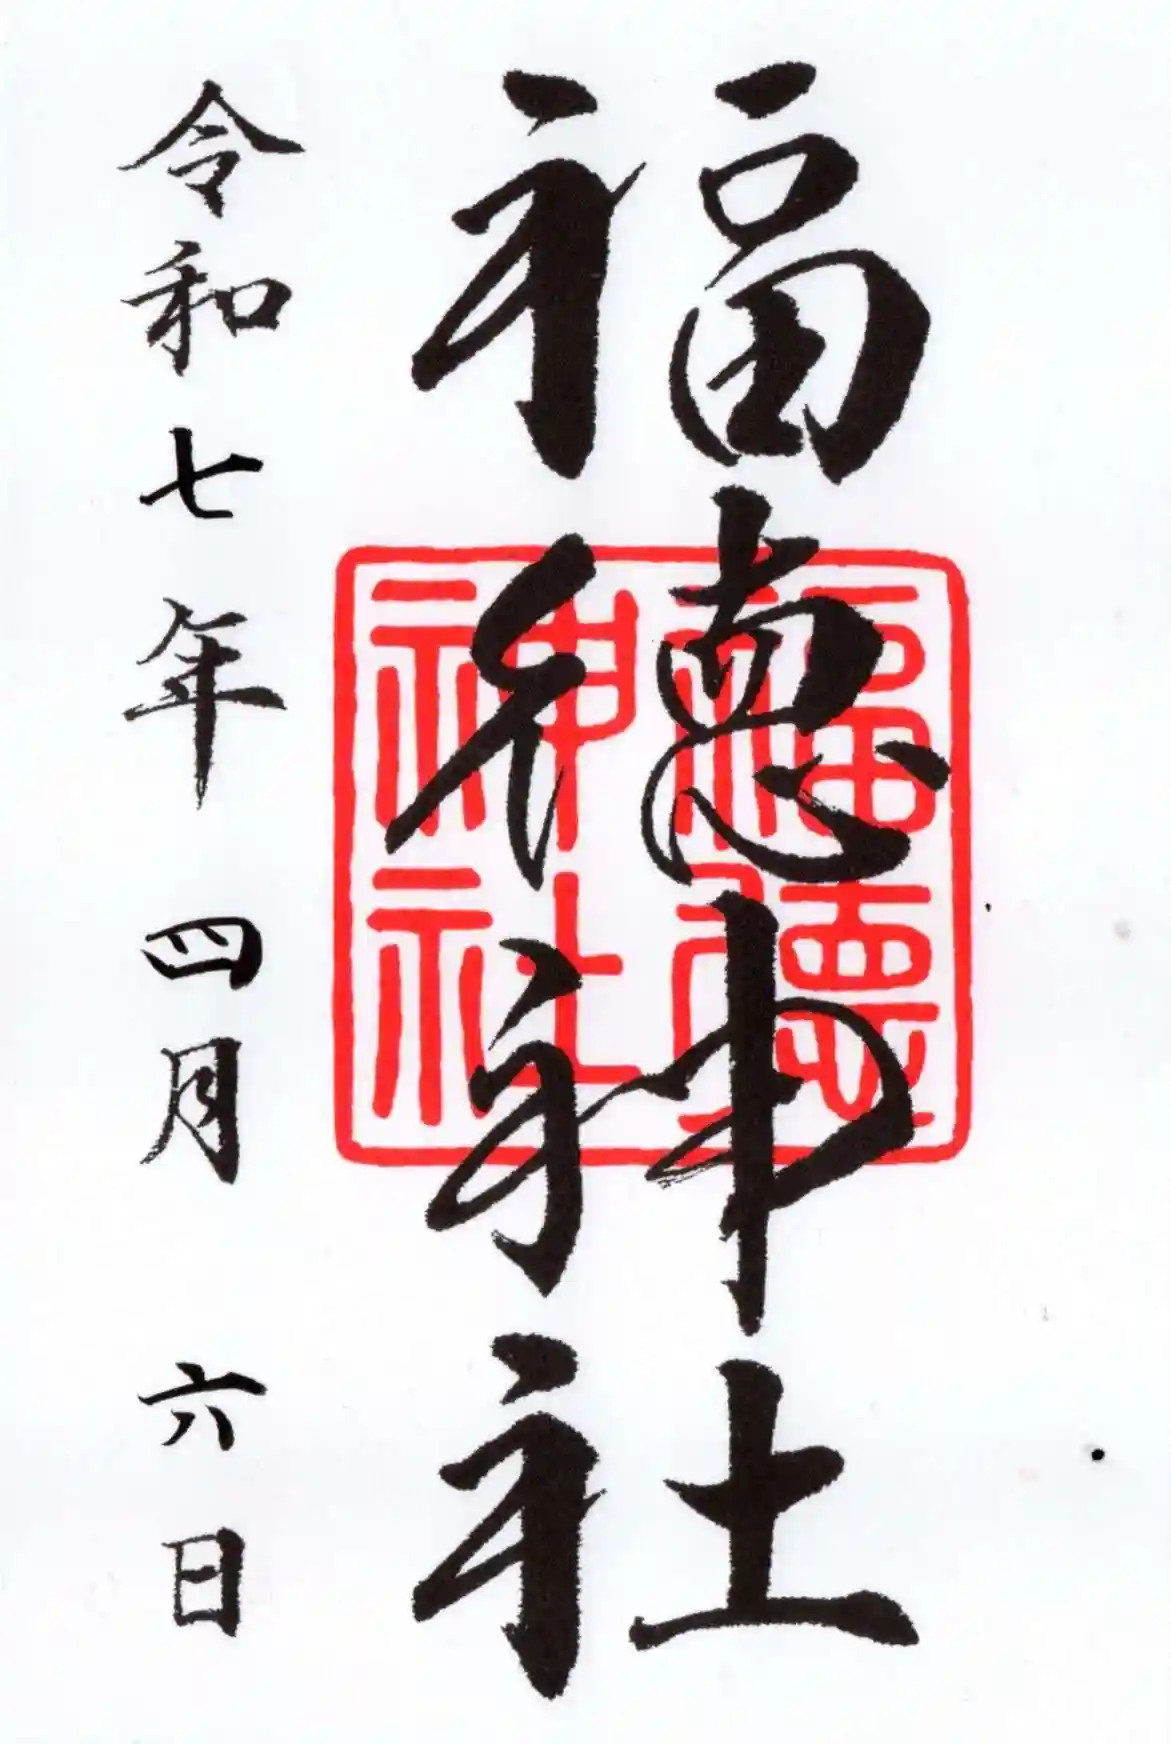 福徳神社
福徳神社
令和七年四月六日